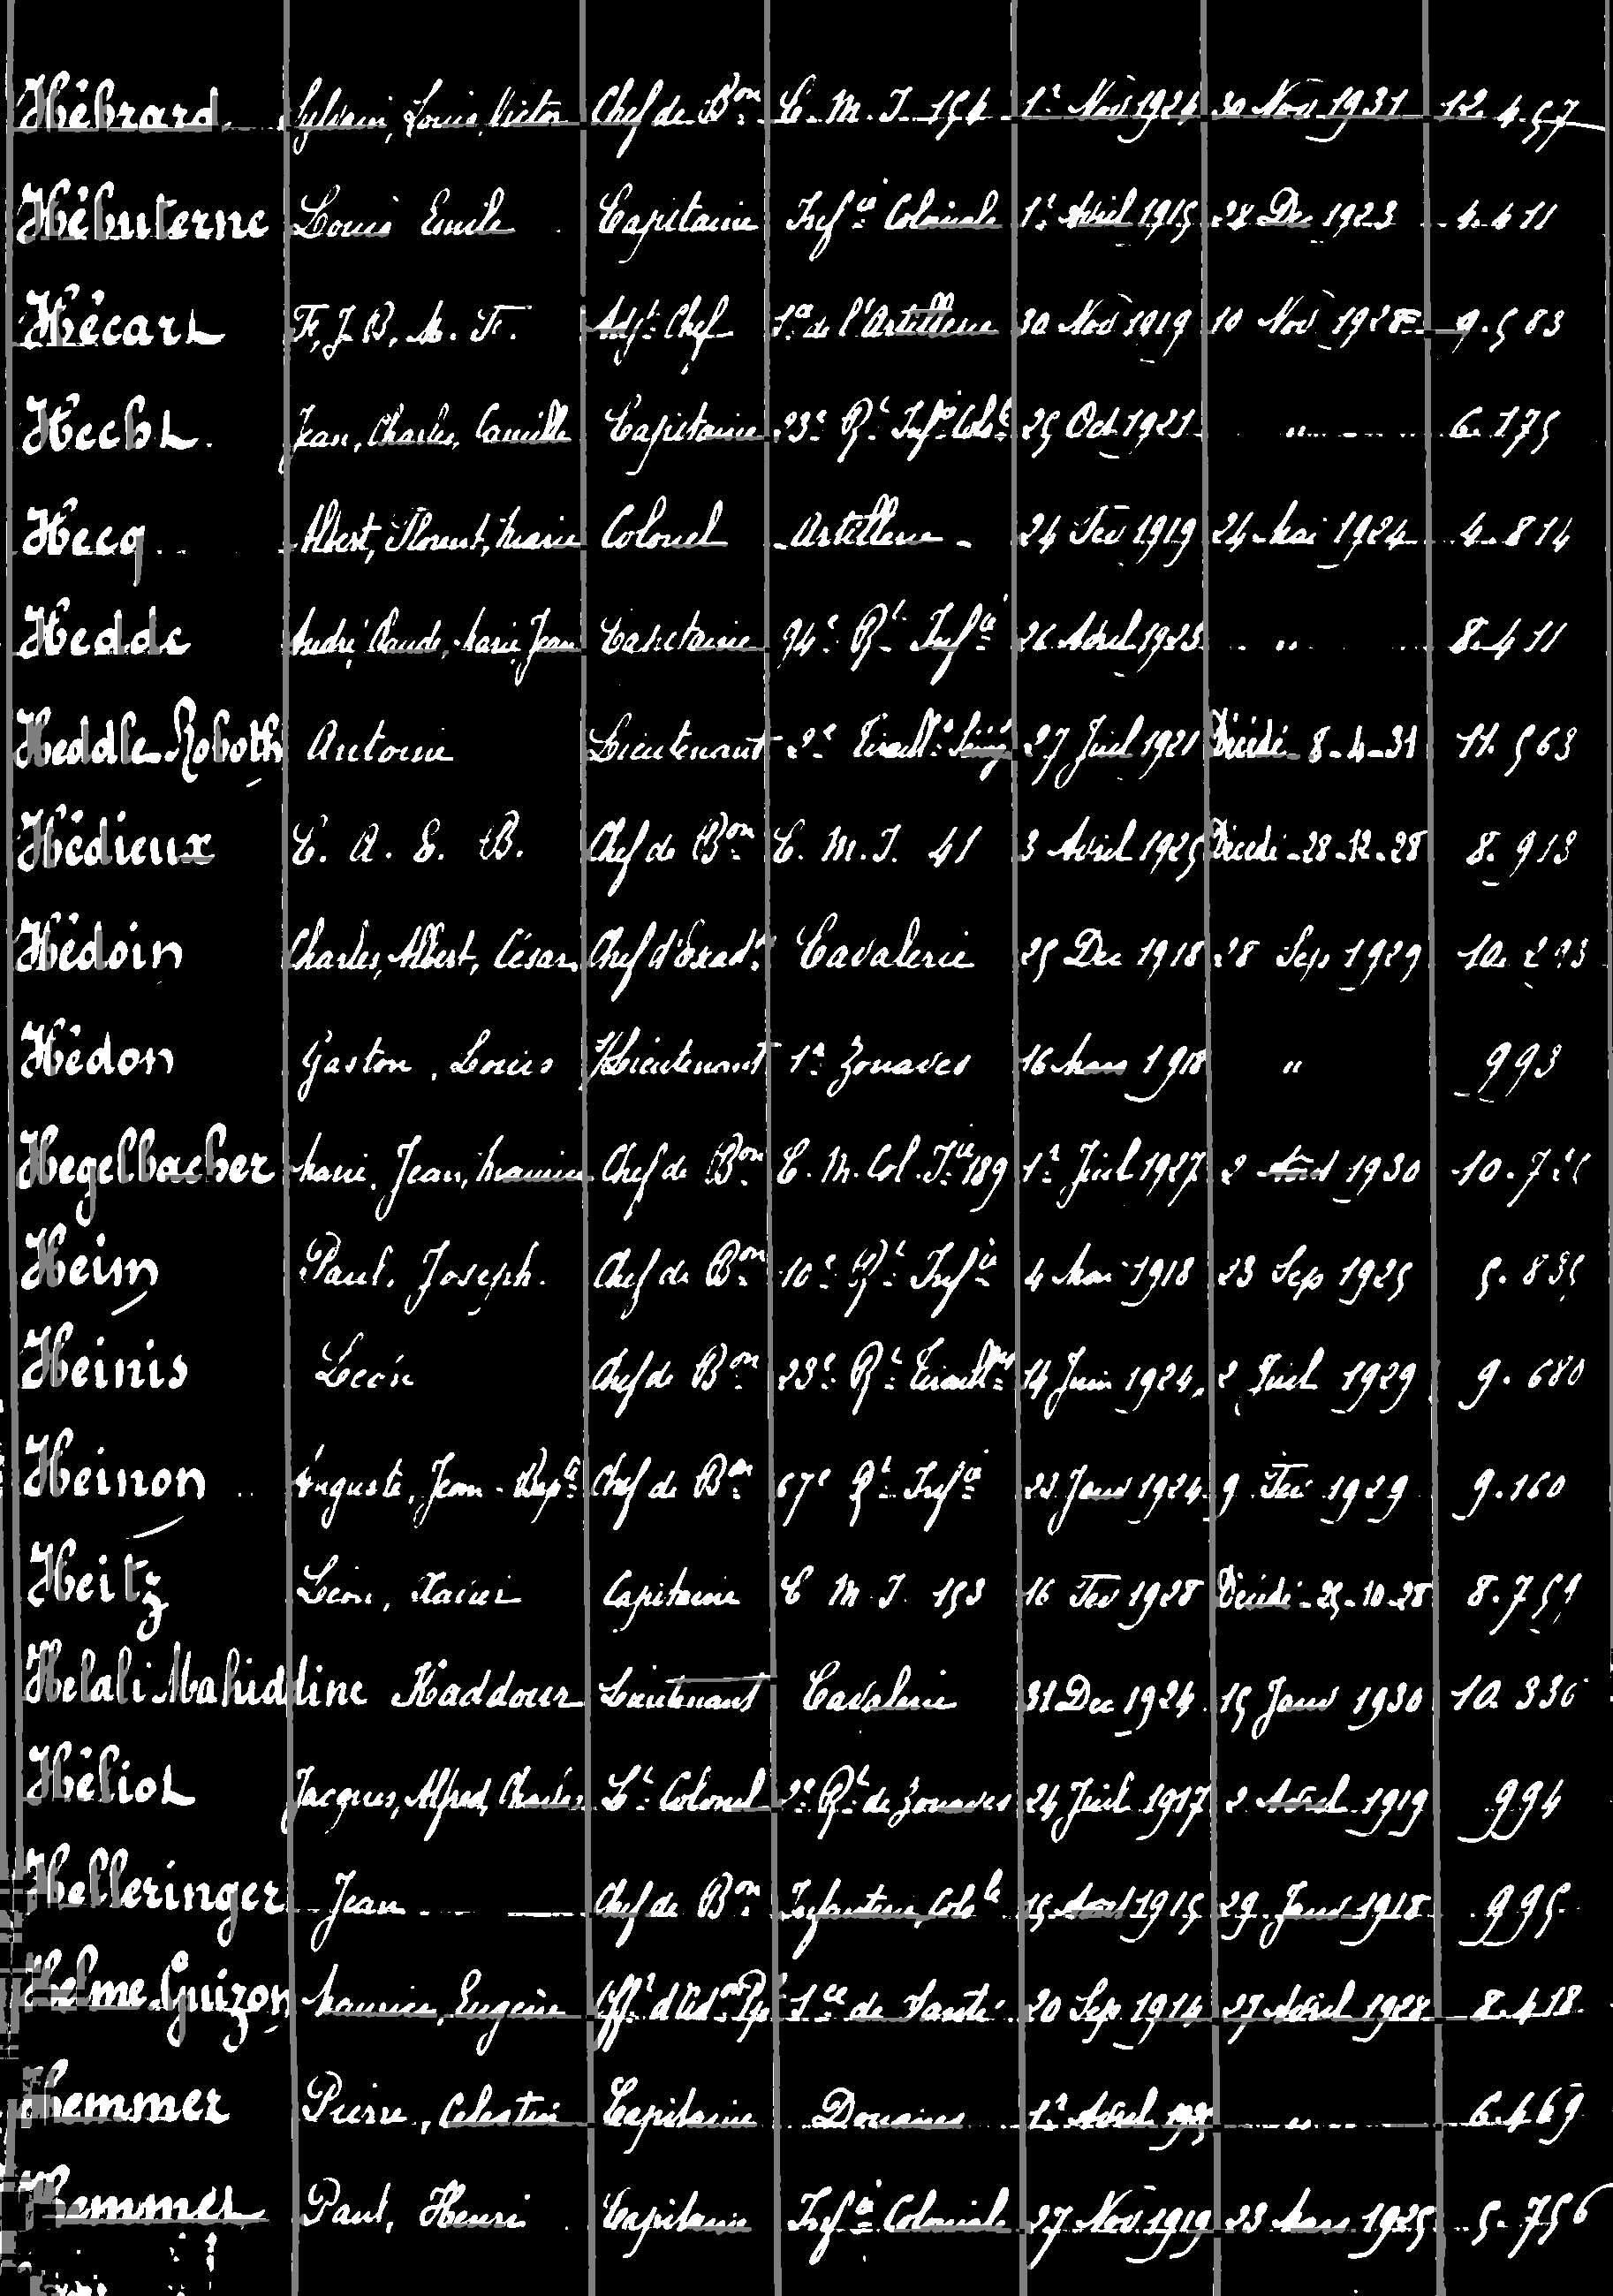 Hébrard Sylvain, Louis, Victor Chef de Bon C. M. I. 154 1er Nov 1924 30 Nov 1931 12.457
Hébuterne Louis Emile Capitaine Infie Coloniale 1er Avril 1915 28 Dec 1923 4.411
Hécart F. J. B. M. F. Adjt Chef 1ce de l'Artillerie 30 Nov 1919 10 Nov 1928 9.583
Hecht Jean, Charles, Camille Capitaine 23e Rt Infie Colle 25 Oct 1921 " 6.175
Hecq Albert, Florent, Marie Colonel Artillerie 24 Fev 1919 24 Mai 1924 4.814
Hedde André, Claude, Marie, Jean Capitaine 94e Rt Infie 26 Avril 1925 " 8.411
Heddle Roboth Antoine Lieutenant 2e Tiraills 27 Juil 1921 Décédé 8-4-31 11.563
Hédieux C. A. E. B. Chef de Bon C. M. I. 41 3 Avril 1925 Décédé 28-12-28 8.913
Hédoin Charles, Albert, César Chef d'Escadn Cavalerie 25 Dec 1918 28 Sep 1929 10.293
Hédon Gaston, Louis S/Lieutenant 1er Zouaves 16 Mars 1918 " 993
Hegelbacher Marie, Jean, Maurice Chef de Bon C. M. Col. Iie 189 1er Juil 1927 2 1930
Heim Paul, Joseph. Chef de Bon 10e Rt Infie 4 Mai 1918 23 Sep 1925 5.835
Heinis Léon Chef de Bon 23e Rt Tiraillrs 14 Juin 1924 2 Juil 1929 9.680
Heinon Auguste, Jean-Bapte Chef de Bon 67e Rt Infie 23 Janv 1924 9 Fev 1929 9.160
Heitz Léon, Xavier Capitaine C M I. 153 16 Fev 1928 Décédé 25-10-28 8.759
Helali Mahiddine Kaddour Lieutenant Cavalerie 31 Dec 1924 15 Janv 1930 10.336
Héliot Jacques, Alfred, Charles Lt Colonel 2e Rt de Zouaves 24 Juil 1917 2 Avril 1919 994
Helleringer Jean Chef de Bon Infanterie Colle 15 Avril 1915 29 Janv 1918 995
Helme Guizon Maurice, Eugène Offr d'Adon Ppl 1ce de Santé 20 Sep 1914 27 Avril 1928 8.418
Hemmer Pierre, Célestin Capitaine Douanes 1er Avril " 6.469
Hemmer Paul, Henri Capitaine Infie Coloniale 27 Nov 1919 23 Mars 1925 5.756